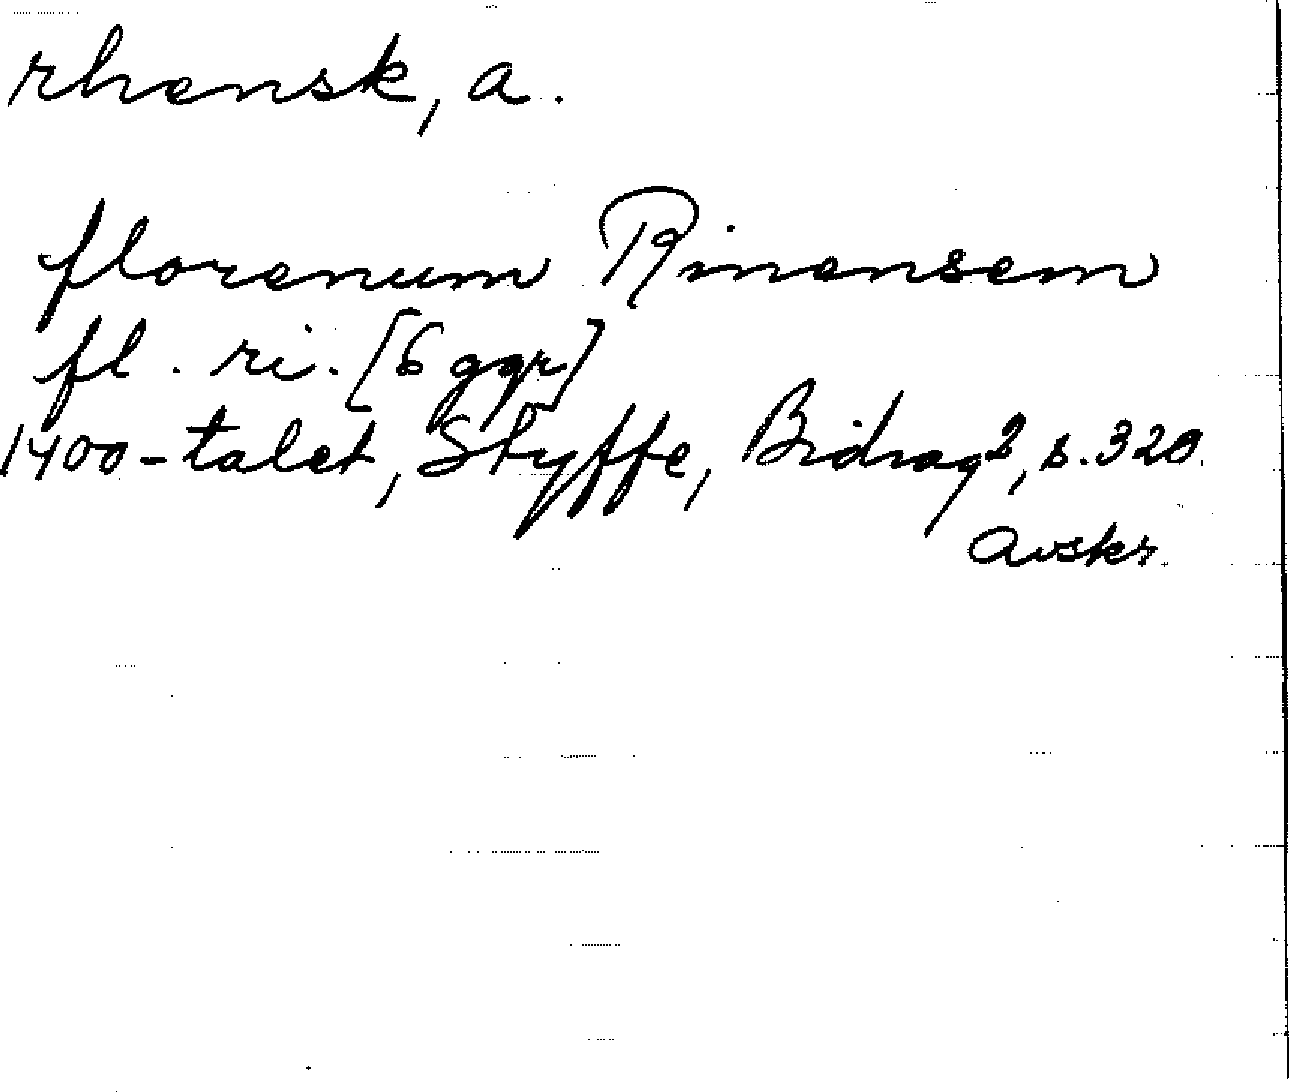 rhensk, a.
florenum Rinensem
fl. ri. [6 ggr]
1400-talet, Styffe, Bidrag 2, s. 320.
Avskr.